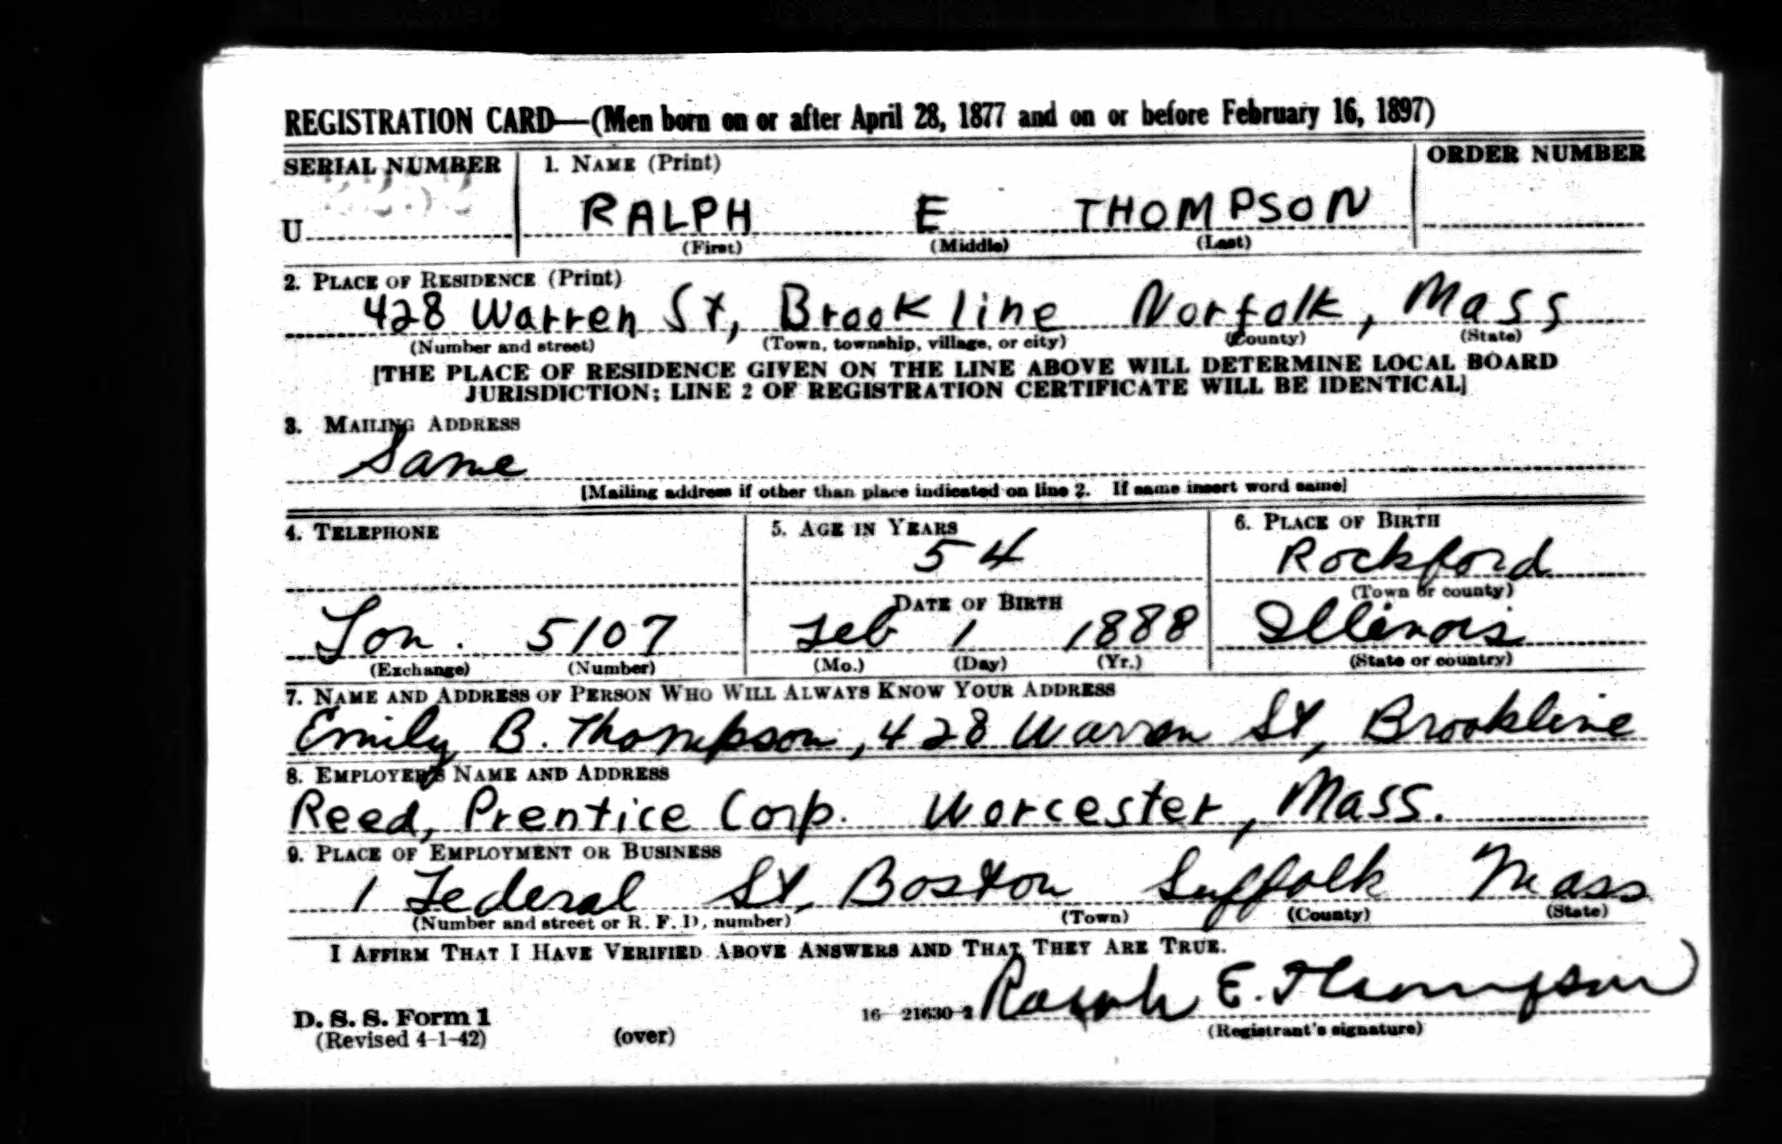 REGISTRATION CARD—(Men born on or after April 28, 1877 and on or before February 16, 1897)
SERIAL NUMBER
1. NAME (Print)
ORDER NUMBER
U
RALPH E THOMPSON
(First) (Middle) (Last)
2. PLACE OF RESIDENCE (Print)
428 Warren St, Brookline Norfolk, Mass
(Number and street) (Town, township, village, or city) (County) (State)
[THE PLACE OF RESIDENCE GIVEN ON THE LINE ABOVE WILL DETERMINE LOCAL BOARD
JURISDICTION; LINE 2 OF REGISTRATION CERTIFICATE WILL BE IDENTICAL]
3. MAILING ADDRESS
Same
[Mailing address if other than place indicated on line 2. If same insert word same]
4. TELEPHONE
5. AGE IN YEARS
6. PLACE OF BIRTH
54
Rockford
(Town or county)
DATE OF BIRTH
Lon. 5107
Feb 1 1888
Illinois
(Exchange) (Number)
(Mo.) (Day) (Yr.)
(State or country)
7. NAME AND ADDRESS OF PERSON WHO WILL ALWAYS KNOW YOUR ADDRESS
Emily B. Thompson, 428 Warren St, Brookline
8. EMPLOYER'S NAME AND ADDRESS
Reed, Prentice Corp. Worcester, Mass.
9. PLACE OF EMPLOYMENT OR BUSINESS
1 Federal St, Boston Suffolk Mass
(Number and street or R. F. D. number) (Town) (County) (State)
I AFFIRM THAT I HAVE VERIFIED ABOVE ANSWERS AND THAT THEY ARE TRUE.
Ralph E. Thompson
D. S. S. Form 1
(Revised 4-1-42)
(over)
16—21630-2
(Registrant's signature)